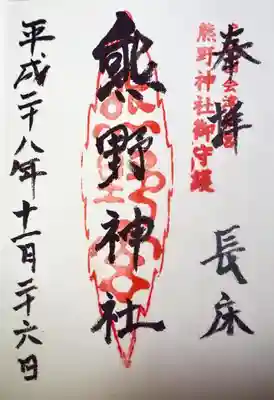 奉拝
熊野神社御守護
長床
熊野神社
平成二十八年十一月二十六日